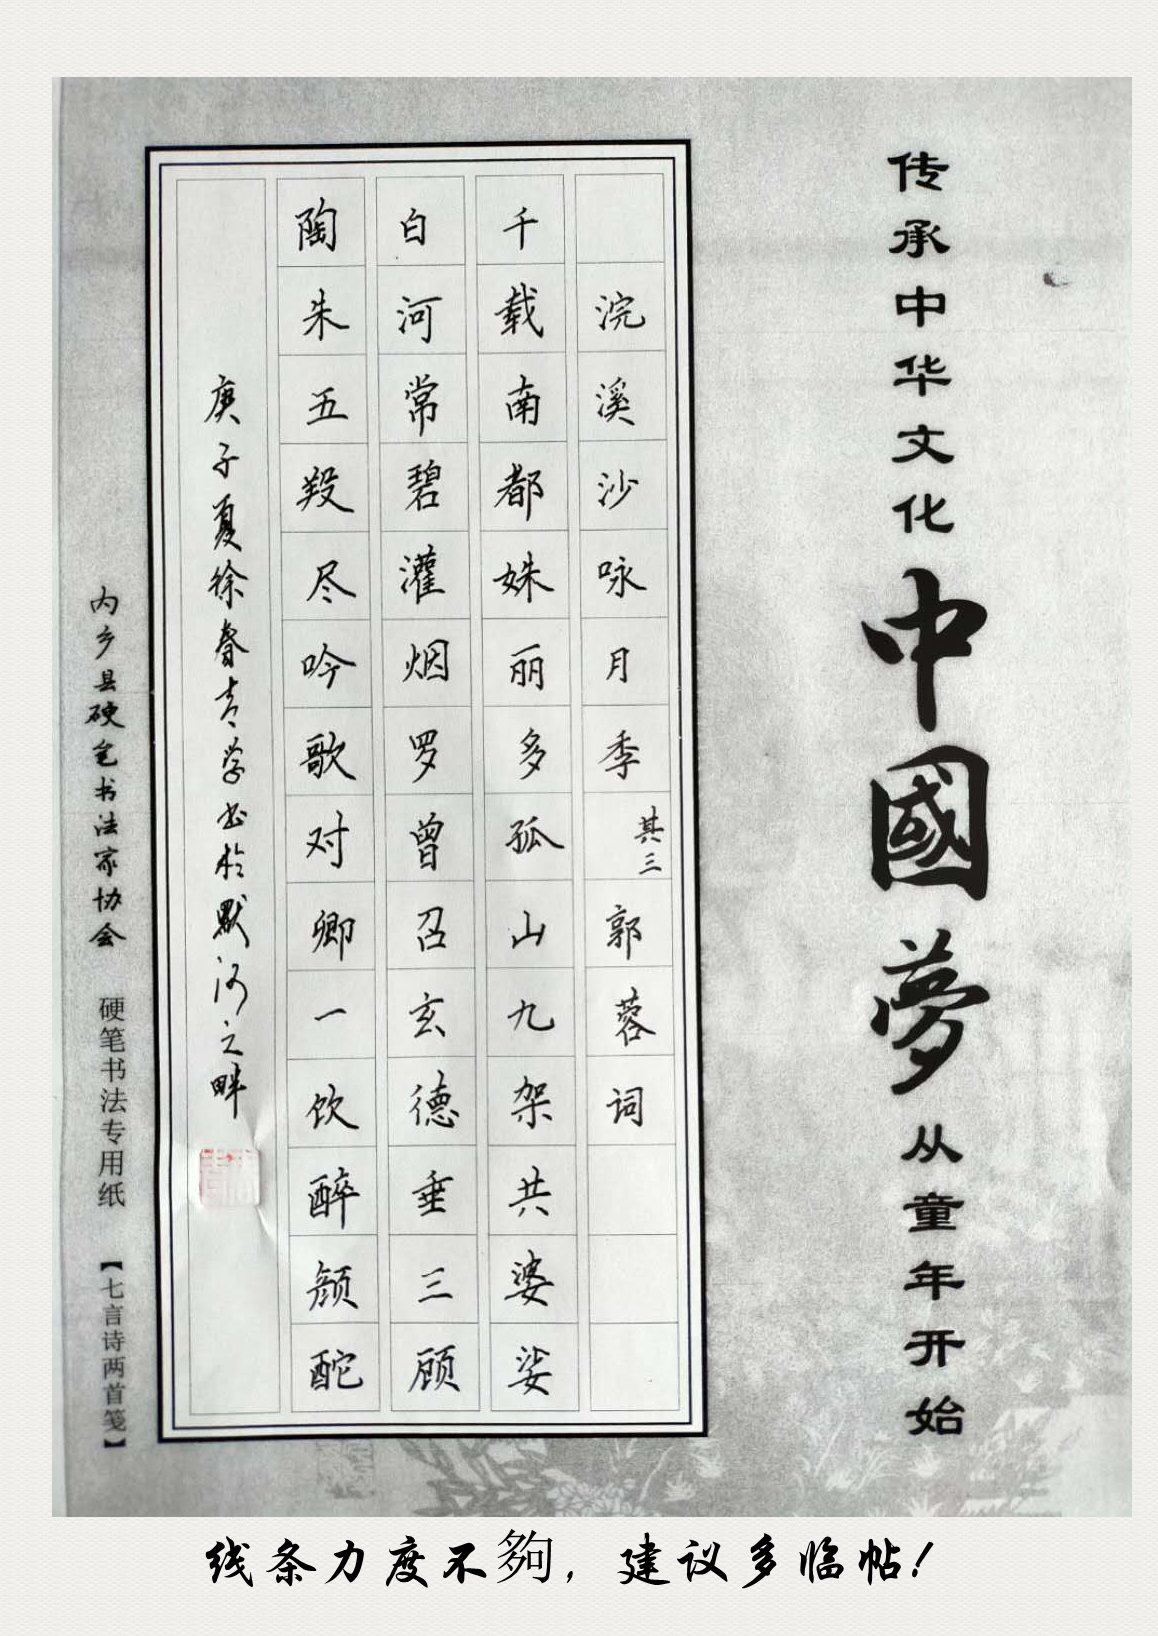 传承中华文化
中國夢
从童年开始
浣溪沙咏月季其三郭蓉词
千载南都姝丽多孤山九架共婆娑
白河常碧灌烟罗曾召玄德垂三顾
陶朱五羖尽吟歌对卿一饮醉颜酡
庚子夏徐春青学书于默河之畔
内乡县硬笔书法家协会 硬笔书法专用纸 【七言诗两首笺】
线条力度不夠，建议多临帖！